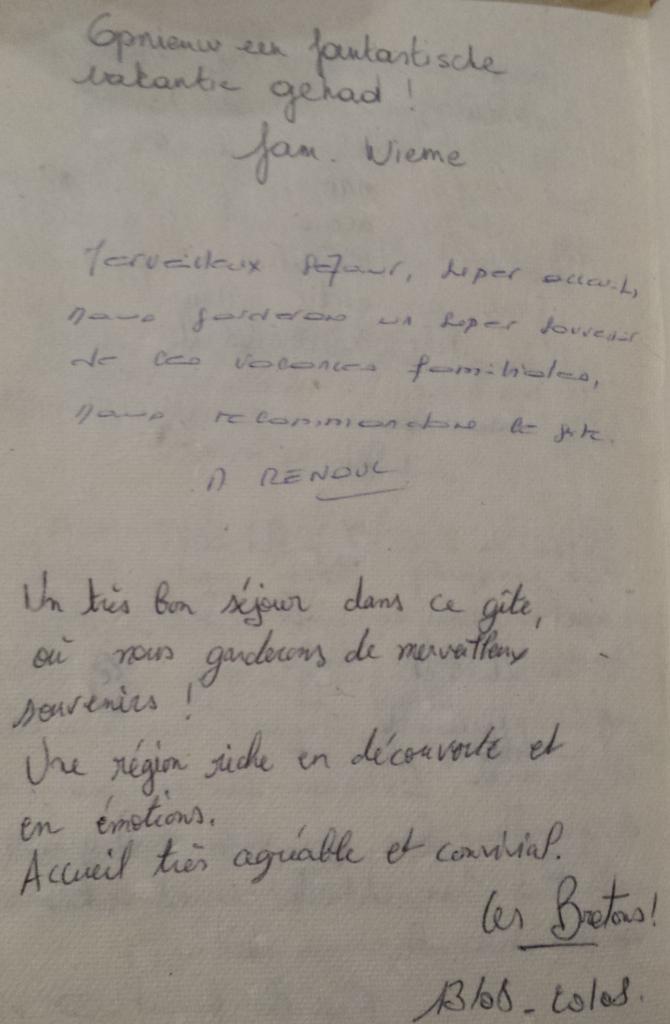 Opnieuw een fantastische
vakantie gehad !
fam. Wieme
Merveilleux séjour, super accueil,
nous garderons un super souvenir
de ces vacances familiales,
nous recommandons le gite.
RENOUL
Un très bon séjour dans ce gîte,
où nous garderons de merveilleux
souvenirs !
Une région riche en découverte et
en émotions.
Accueil très agréable et convivial.
Les Bretons !